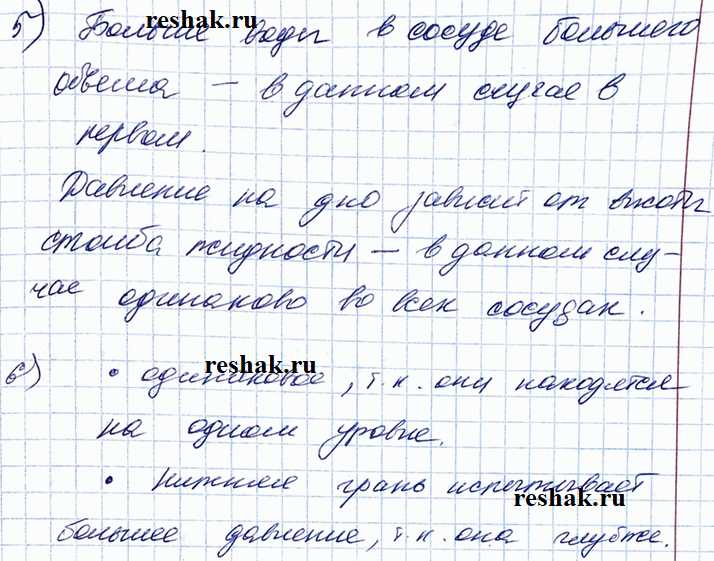 reshak.ru
5) Больше воды в сосуде большего
объема — в данном случае в
первом.
Давление на дно зависит от высоты
столба жидкости — в данном слу-
чае одинаково во всех сосудах.
reshak.ru
6) • одинаковое, т.к. они находятся
на одном уровне.
• Нижняя грань испытывает
reshak.ru
большее давление, т.к. она глубже.